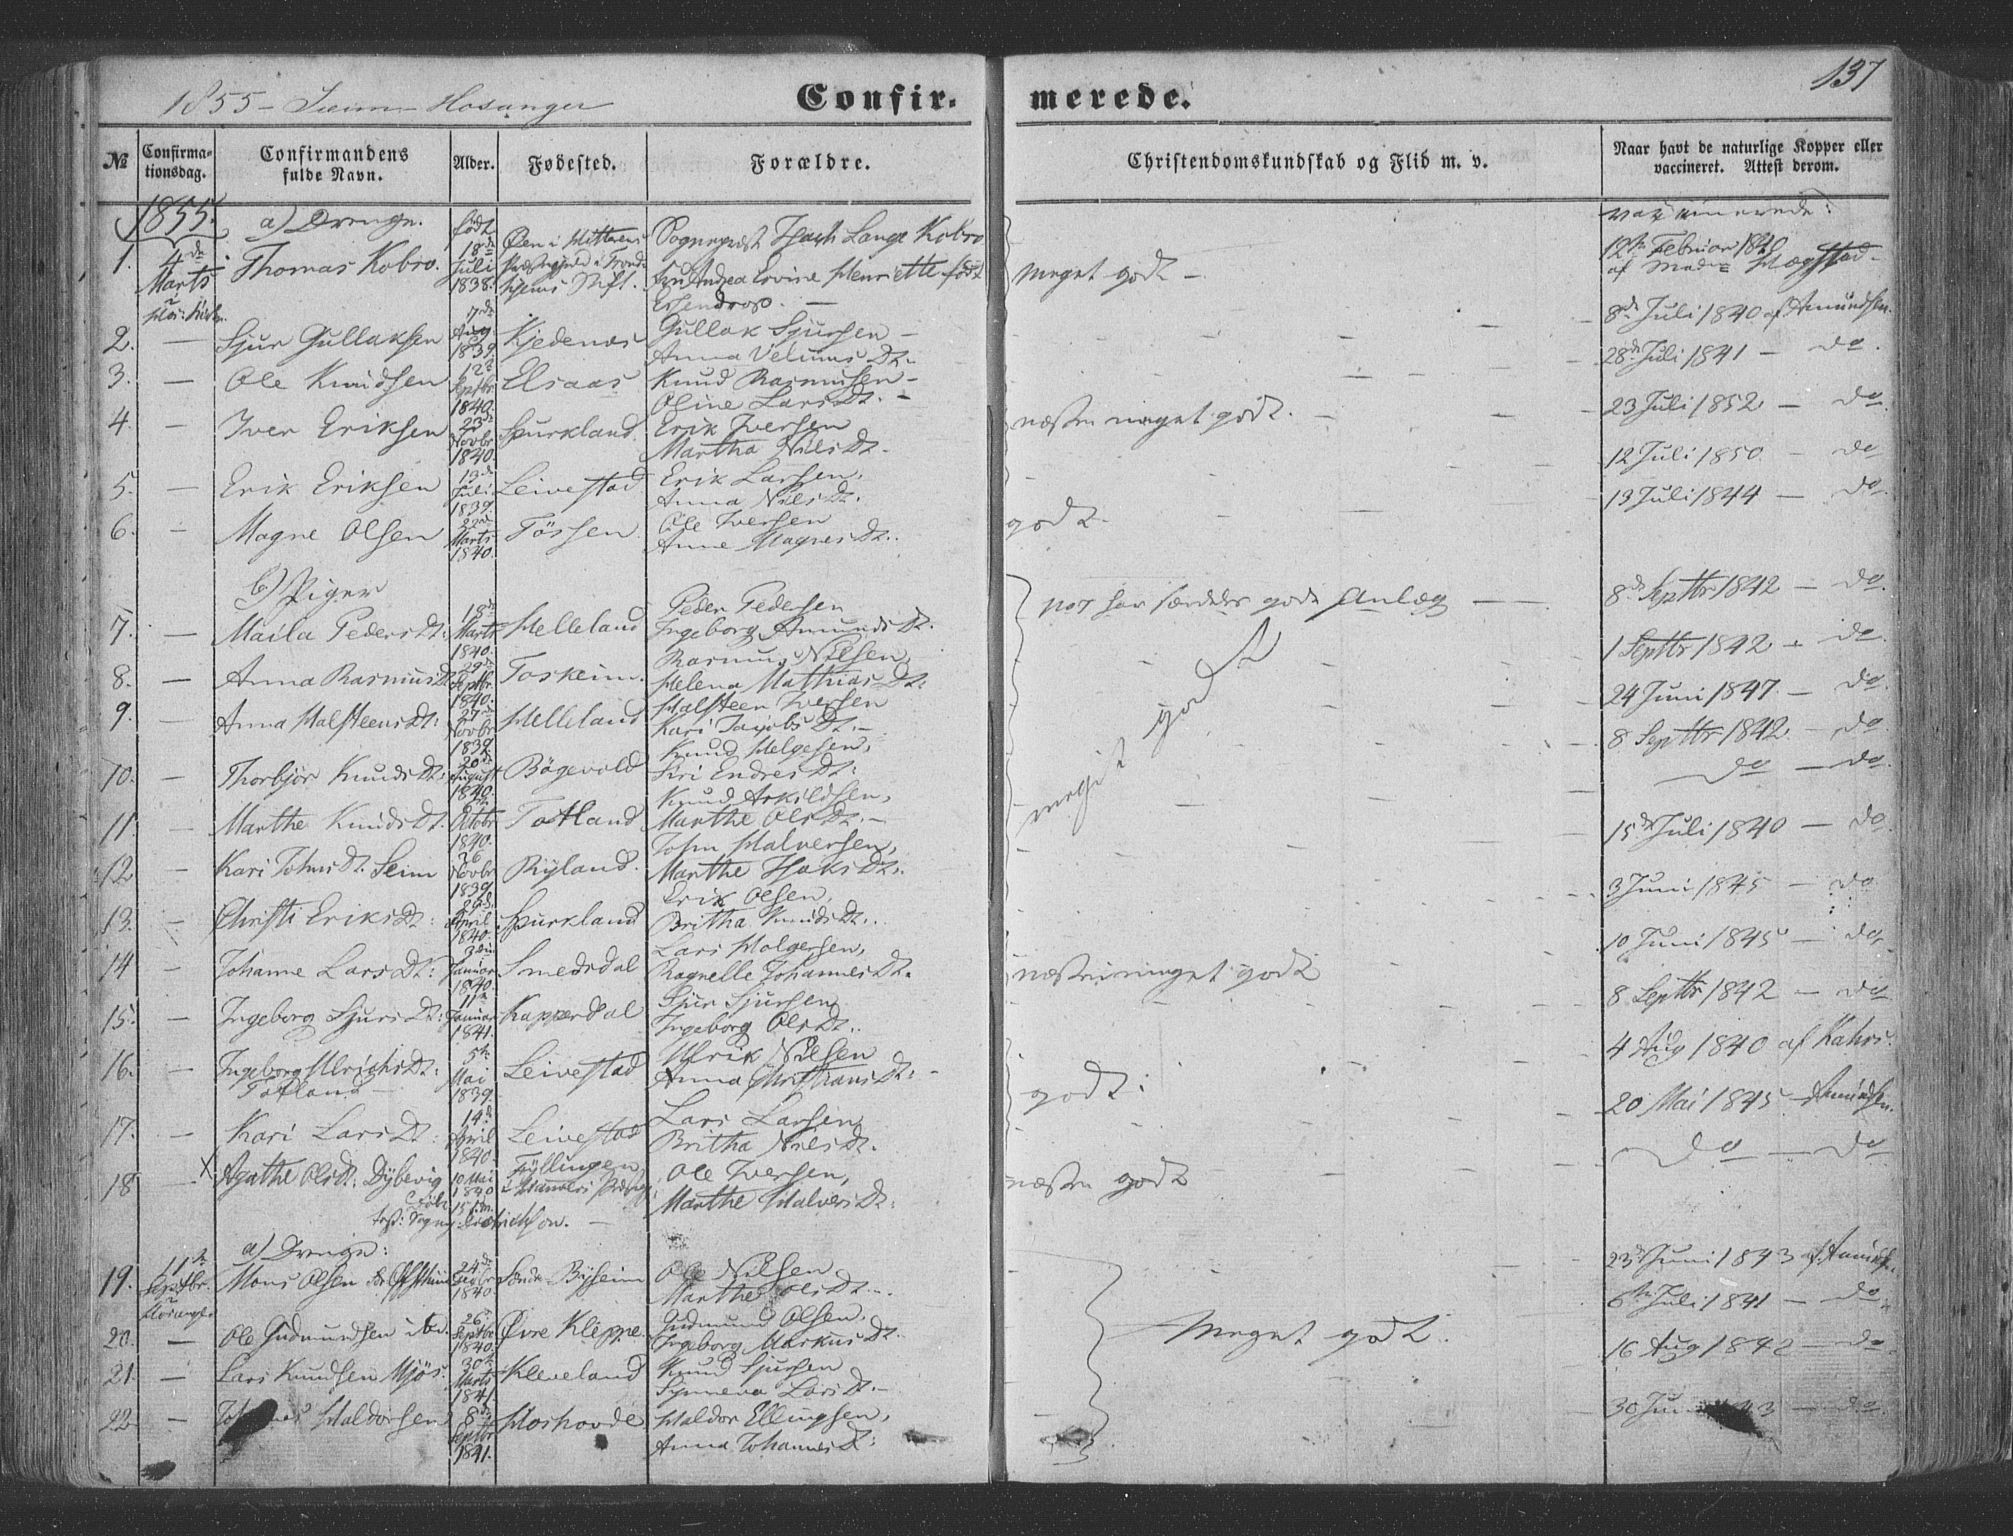 1855 - Seim - Hosanger
Confir- merede.
137
No
Confirma-
tionsdag.
Confirmandens
fulde Navn.
Alder.
Födested.
Forældre.
Christendomskundskab og Flid m. v.
Naar havt de naturlige Kopper eller
vaccineret. Attest derom.
1855.
a) Drenge.
födt
vaccinerede:
1. 4de Marts Thomas Kobro. 18de Juli 1838. Sogneprest Lange Kobro
Henriette födt
Meget godt - 12te Februar 1840
2. - Sjur Gullaksen 7de Aug 1839. Kjedenæs Gullak Sjursen -
Anna Dt.
8de Juli 1840 af Amundsen.
3. - Ole Knudsen 12te Septbr 1840. Elsaas Knud Rasmusen -
Oline Larsdt. -
28de Juli 1841 - do.
4. - Iver Eriksen 23de Novbr 1840. Spurkland. Erik Iversen
Martha Nilsdt.
næsten meget godt. 23 Juli 1852 - do.
5. - Erik Eriksen 13de Juli 1839. Leivestad Erik Larsen,
Anna Nilsdt.
12 Juli 1850. - do
6. - Magne Olsen 22de Marts 1840. Tössen Ole Iversen
Anne Magnesdt.
godt. 13 Juli 1844 - do.
b) Piger
7. - Maila Pedersdt: 18de Marts 1840. Helleland Peder Pedersen
Ingeborg Amundsdt.
godt Anlæg 8de Septbr 1842 - do
8. - Anna Rasmusdt 29de Septbr 1840. Toskeim. Rasmus Nilsen
Helena Mathiasdt:
1 Septbr 1842 - do.
9. - Anna Halsteensdt: 27de Novbr 1839. Helleland Halsteen Iversen
Kari Jacobsdt. -
24 Juni 1847 - do.
10. - Thorbjör Knudsdt: 20de August 1840. Bögevold Knud Helgesen,
Siri Endresdt:
meget godt 8 Septbr 1842 - do.
11. - Marthe Knudsdt. Octobr 1840. Totland Knud Askildsen,
Marthe Olsdt. -
do - do.
12 - Kari Johnsdt. Seim 26 Novbr 1839. Ryland. John Halversen,
Marthe
15de Juli 1840 - do.
13. - Christi Eriksdt: 26de April 1840. Spurkland Erik Olsen,
Britha Knudsdt.
3 Juni 1845 - do
14 - Johanne Larsdt: 3die Januar 1840. Smedsdal Lars Holgersen,
Ragnelle Johannesdt.
næsten meget godt 10 Juni 1845 - do.
15. - Ingeborg Sjursdt: 11te Januar 1841. Kapperdal Sjur Sjursen,
Ingeborg Olsdt.
8 Septbr 1842 - do
16. - Ingeborg Ulrichsdt:
Totland - 5te Mai 1839. Leivestad Ulrik Nilsen
Anna Christiansdt: -
godt: 4 Aug 1840 af Kahrs.
17. - Kari Larsdt: 14de April 1840. Leivestad Lars Larsen,
Britha Nilsdt.
20 Mai 1845 - Amundsen.
18 - X Agathe Olsdt: Dybevig 10 Mai 1840 Fyllingen
i Hammers Ole Iversen,
Marthe Halversdt:
næsten godt do - do
a) Drenge:
19. 11te Septbr. Hosanger Mons Olsen 24de 1840 Söndre Byseim Ole Nilsen
Marthe Olsdt.
23de Juni 1843
20. - Ole Gudmundsen 26 Septbr 1840. Övre Kleppe. Gudmund Olsen,
Ingeborg Markusdt.
Meget godt. 6te Juli 1841 - do
21 - Lars Knudsen Mjös. 30te Marts 1841. Kleveland Knud Sjursen
Synneva Larsdt. -
16 Aug 1842 - do
22 - Haldorsen 8de Septbr 1841. Hoshovde Haldor Ellingsen,
Anna Johannesdt:
30 - do.